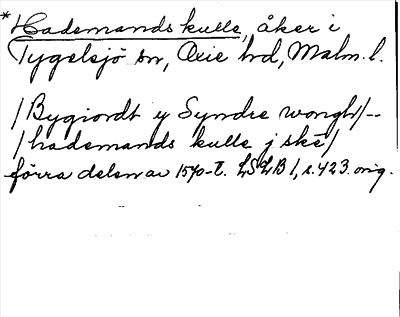 *Hademands kulle, åker i
Tygelsjö sn, Oxie hd, Malm. l.
/Bygiordt y Syndre wongh/--
/hademands kulle j skē/
förra delen av 1570-t. LSLB 1, s. 423. orig.